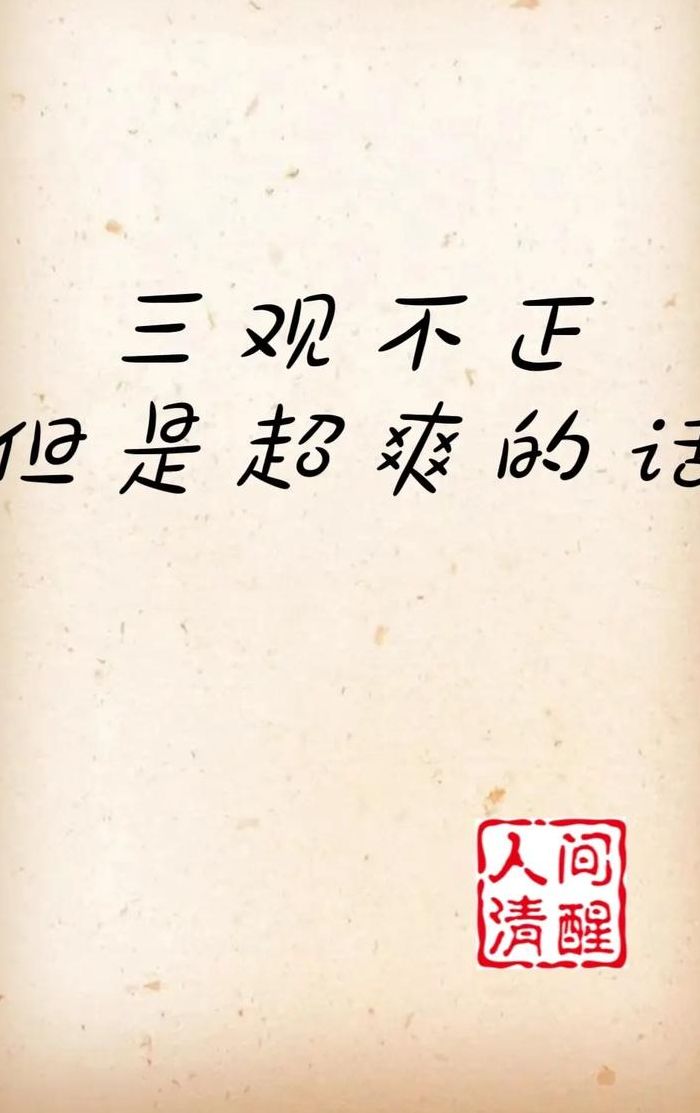 三观不正
但是超爽的话
人间
清醒